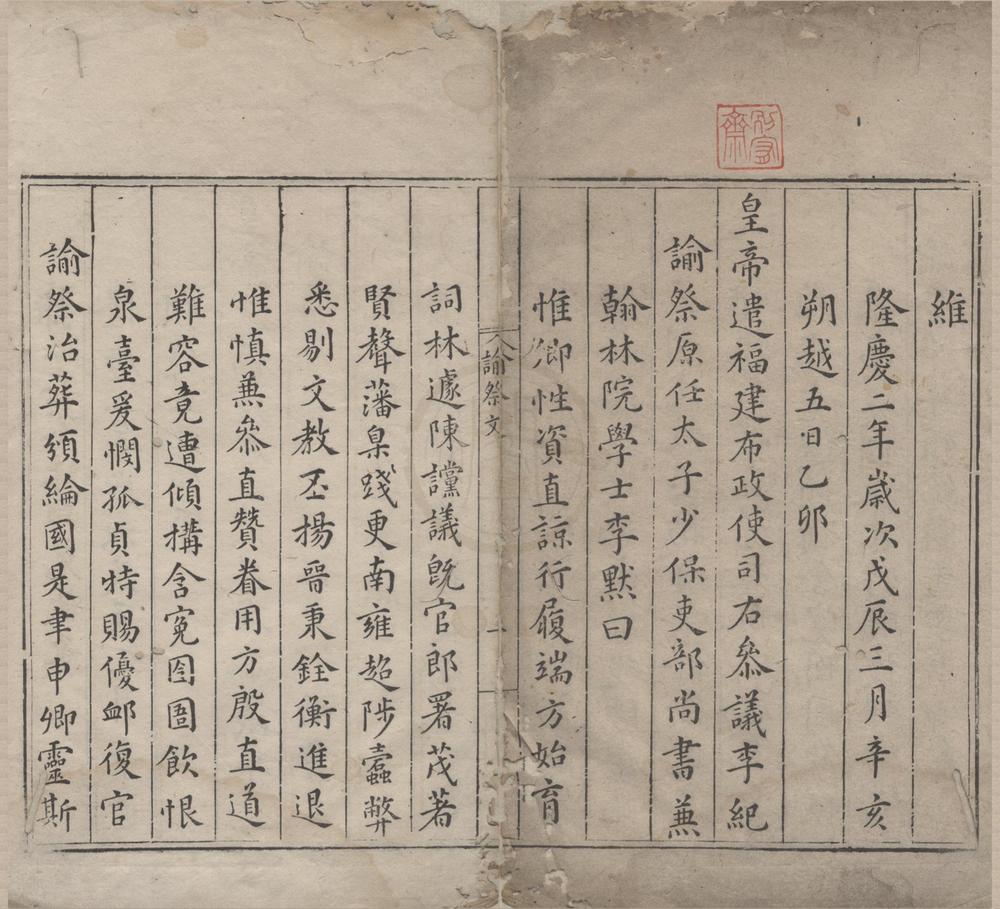 維
隆慶二年歲次戊辰三月辛亥
朔越五日乙卯
皇帝遣福建布政使司右叅議李紀
諭祭原任太子少保吏部尚書兼
翰林院學士李默曰
惟卿性資直諒行履端方始育
諭祭文
一
詞林遽陳讜議旣官郎署茂著
賢聲藩臬踐更南雍超陟蠹弊
悉剔文教丕揚晉秉銓衡進退
惟慎兼叅直贊眷用方殷直道
難容竟遭傾搆含寃囹圄飲恨
泉臺爰憫孤貞特賜優卹復官
諭祭治葬頒綸國是聿申卿靈斯